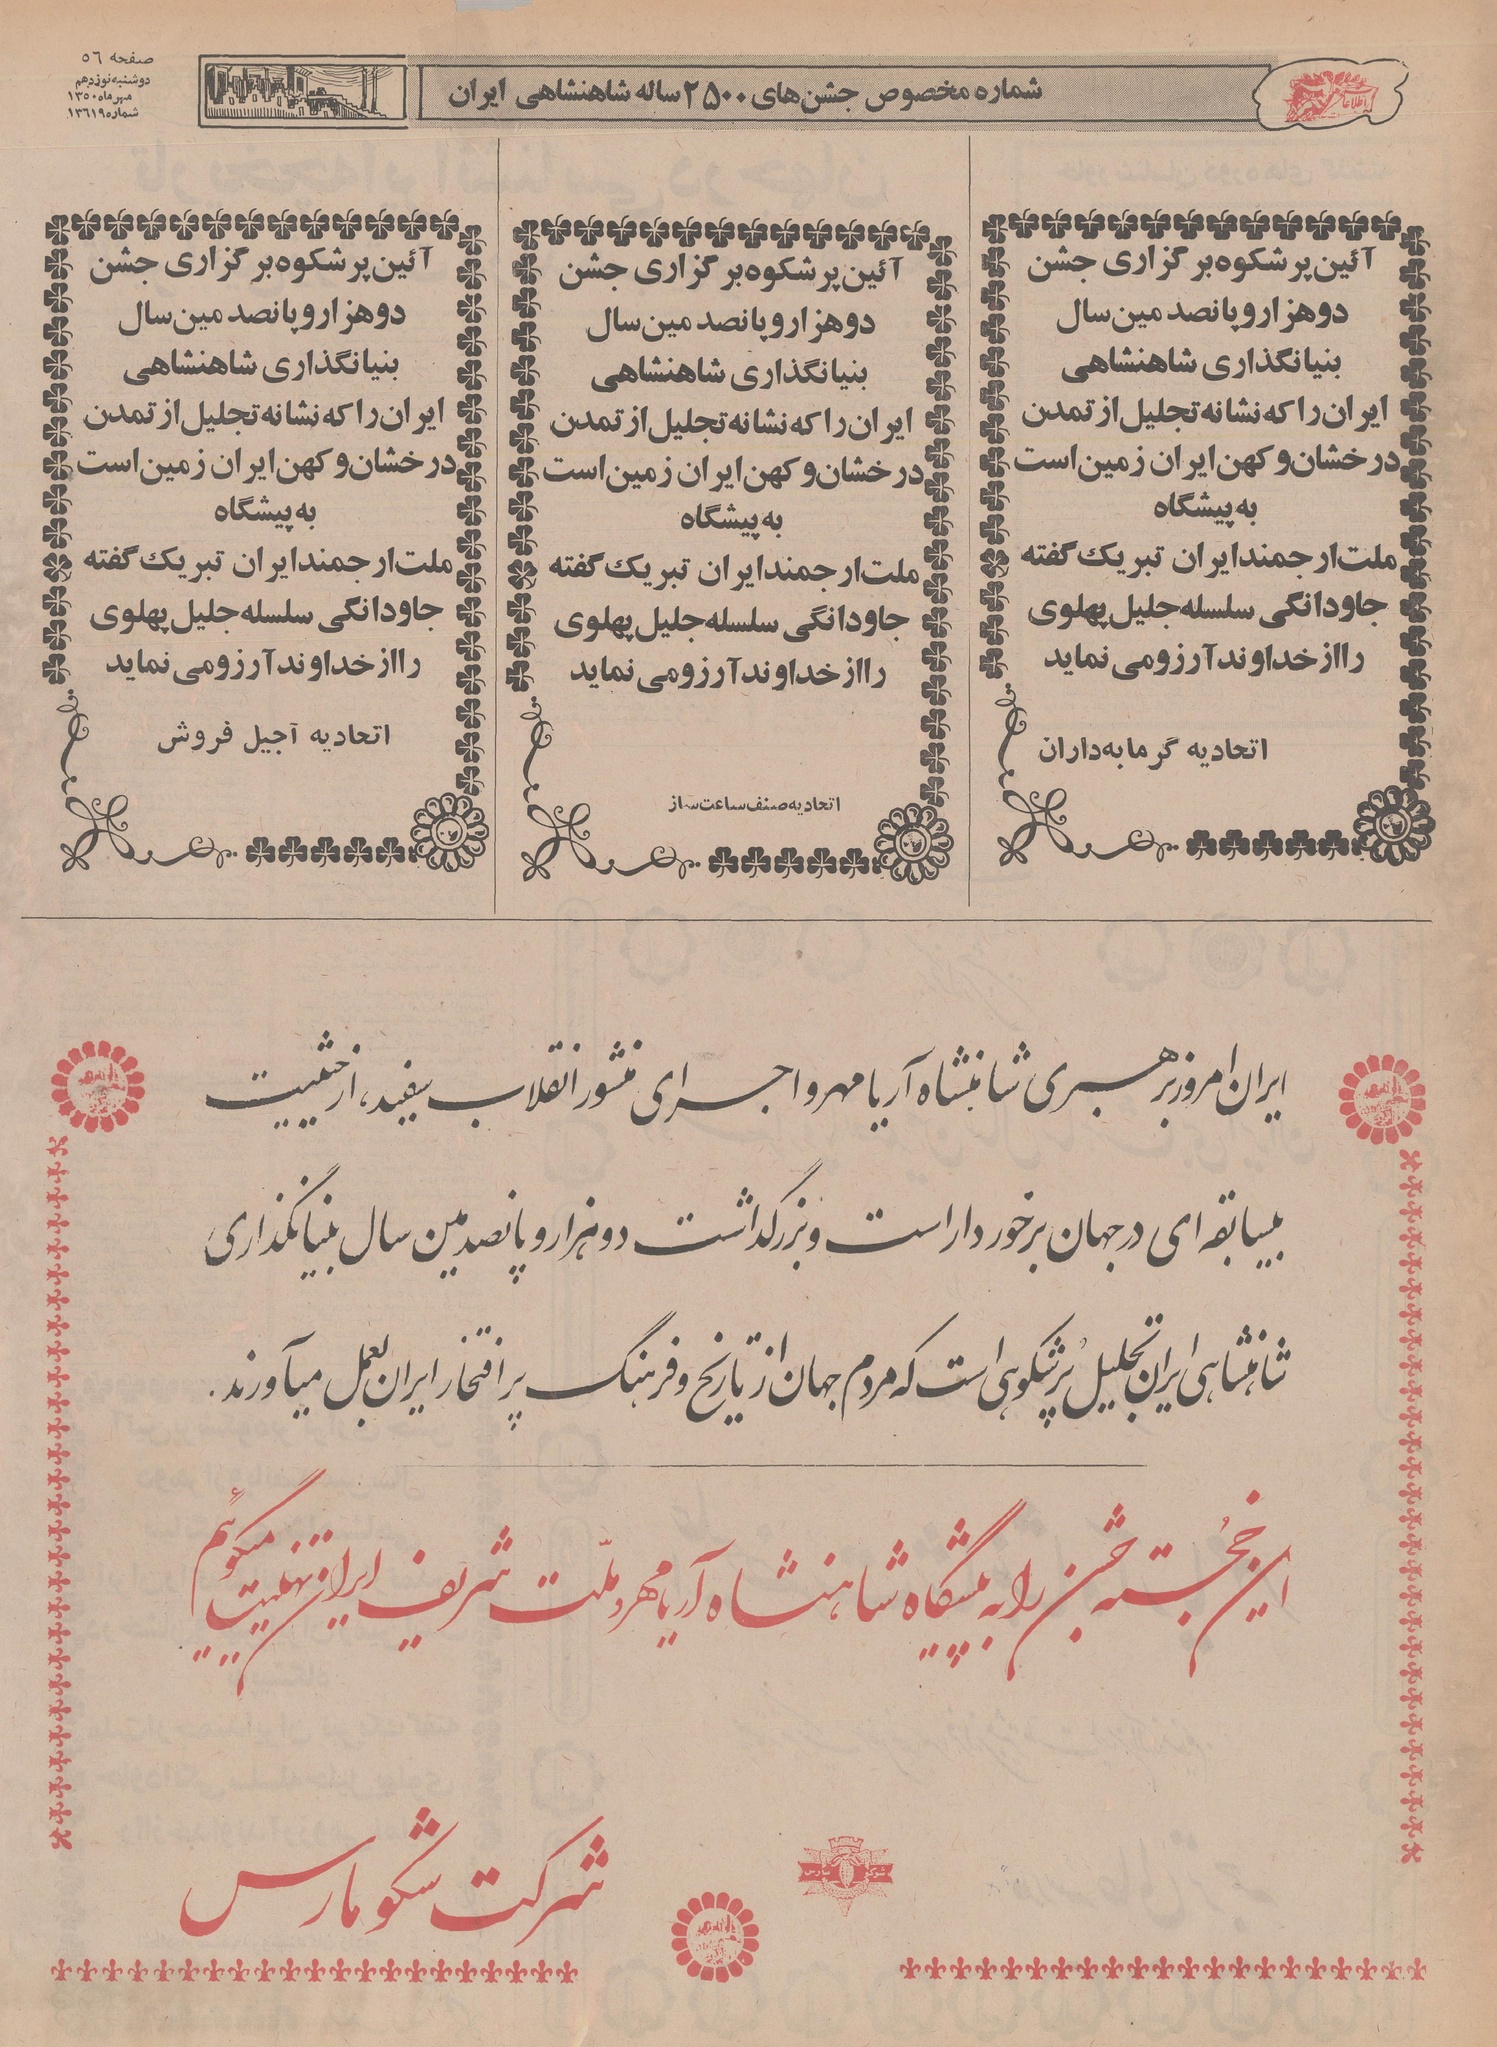 صفحه ۵۶
دوشنبه نوزدهم
مهرماه ۱۳۵۰
شماره ۱۳۶۱۹
شماره مخصوص جشن‌های ۲۵۰۰ ساله شاهنشاهی ایران
اطلاعات
آئین پرشکوه برگزاری جشن
دوهزار و پانصدمین سال
بنیانگذاری شاهنشاهی
ایران را که نشانه تجلیل از تمدن
درخشان و کهن ایران زمین است
به پیشگاه
ملت ارجمند ایران تبریک گفته
جاودانگی سلسله جلیل پهلوی
را از خداوند آرزو می نماید
اتحادیه گرمابه‌داران
آئین پرشکوه برگزاری جشن
دوهزار و پانصدمین سال
بنیانگذاری شاهنشاهی
ایران را که نشانه تجلیل از تمدن
درخشان و کهن ایران زمین است
به پیشگاه
ملت ارجمند ایران تبریک گفته
جاودانگی سلسله جلیل پهلوی
را از خداوند آرزو می نماید
اتحادیه صنف ساعت ساز
آئین پرشکوه برگزاری جشن
دوهزار و پانصدمین سال
بنیانگذاری شاهنشاهی
ایران را که نشانه تجلیل از تمدن
درخشان و کهن ایران زمین است
به پیشگاه
ملت ارجمند ایران تبریک گفته
جاودانگی سلسله جلیل پهلوی
را از خداوند آرزو می نماید
اتحادیه آجیل فروش
ایران امروز برهبری شاهنشاه آریامهر و اجرای منشور انقلاب سفید، از حیثیت
بیسابقه ای در جهان برخوردار است و بزرگداشت دوهزار و پانصدمین سال بنیانگذاری
شاهنشاهی ایران تجلیل پُرشکوهی است که مردم جهان از تاریخ و فرهنگ پر افتخار ایران بعمل میآورند.
این خُجسته جشن را به پیشگاه شاهنشاه آریامهر و ملّت شریف ایران تهنیت میگوئیم
شوکو مارس
شرکت شکومارس